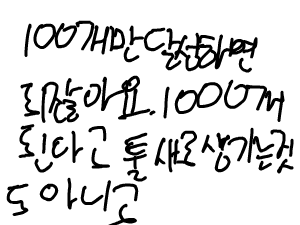 100개만 달성하면
되잖아요.1000개
된다고 툴 새로 생기는것
도 아니고